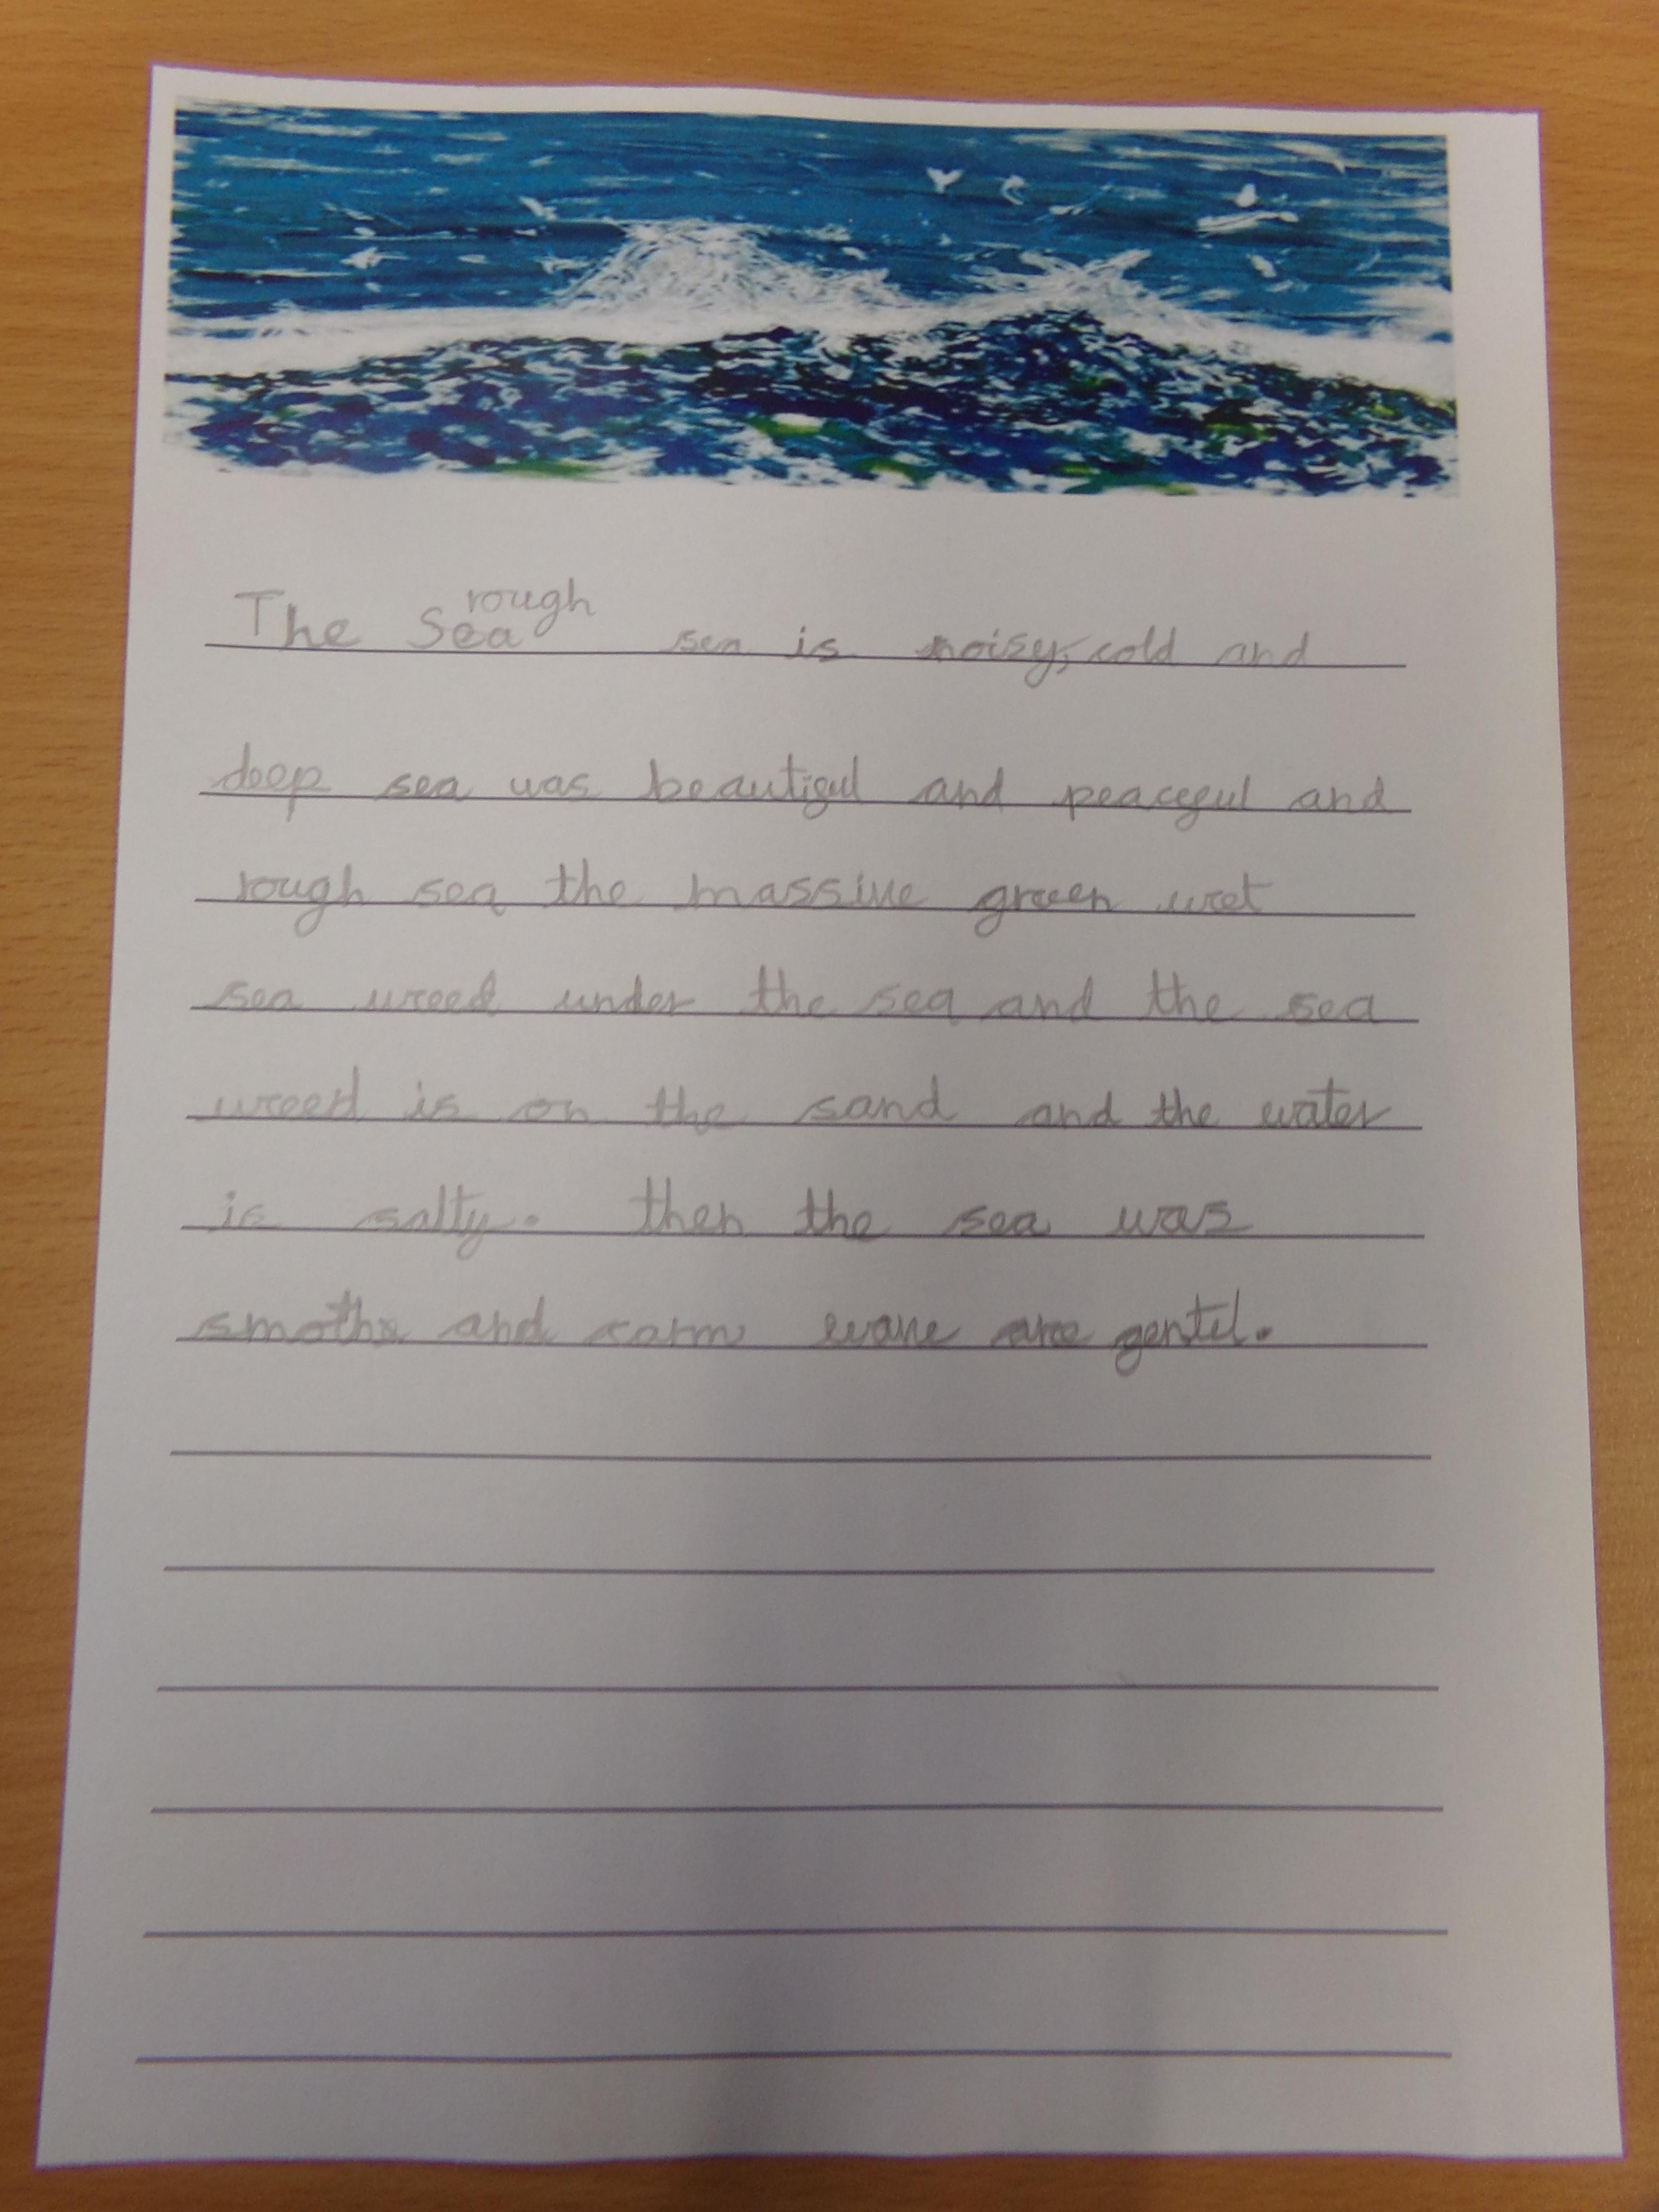 The Sea rough sea is noisy, cold and
deep sea was beautiful and peaceful and
rough sea the massive green wet
sea weed under the sea and the sea
weed is on the sand and the water
is salty. then the sea was
smoths and carm wave are gentil.